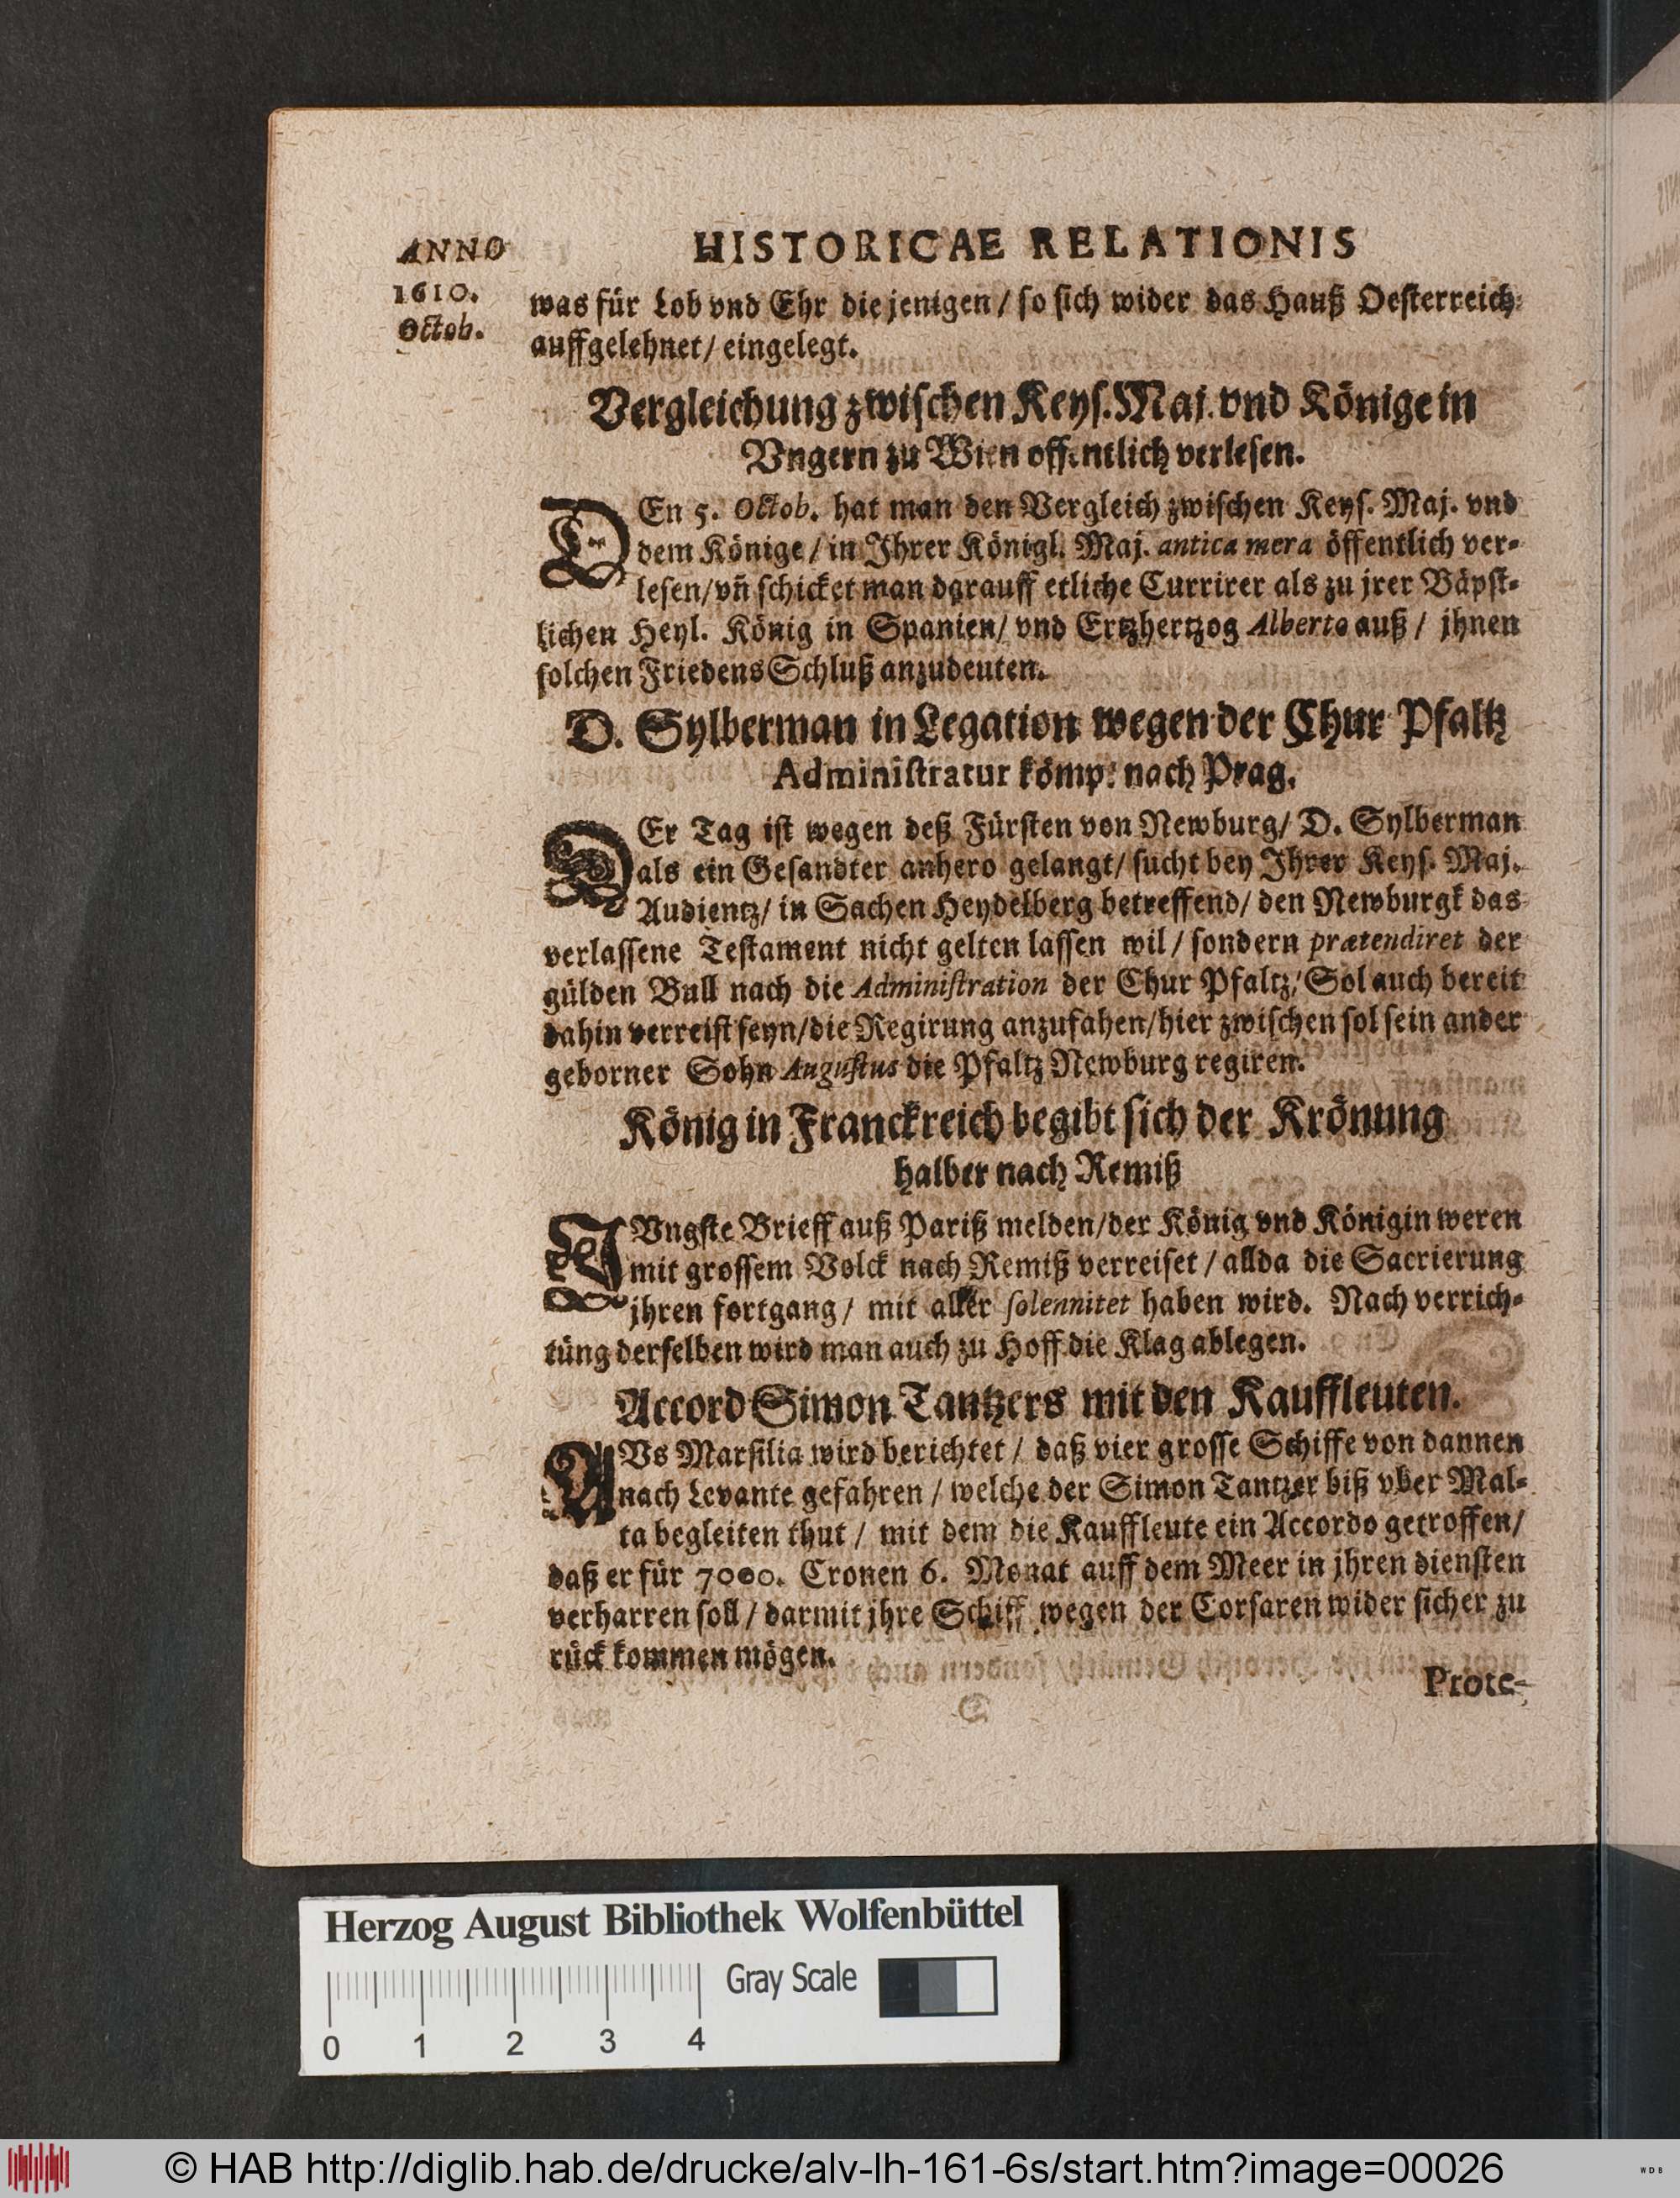 ANNO
1610.
Octob.
HISTORICAE RELATIONIS
was für Lob vnd Ehr die jenigen / so sich wider das Hauß Oesterreich
auffgelehnet / eingelegt.
Vergleichung zwischen Keys. Maj. vnd Könige in
Vngern zu Wien offentlich verlesen.
DEn 5. Octob. hat man den Vergleich zwischen Keys. Maj. vnd
dem Könige / in Ihrer Königl. Maj. antica mera öffentlich ver-
lesen / vñ schicket man darauff etliche Currirer als zu jrer Bäpst-
lichen Heyl. König in Spanien / vnd Ertzhertzog Alberto auß / jhnen
solchen Friedens Schluß anzudeuten.
D. Sylberman in Legation wegen der Chur Pfaltz
Administratur kömpt nach Prag.
DEr Tag ist wegen deß Fürsten von Newburg / D. Sylberman
als ein Gesandter anhero gelangt / sucht bey Ihrer Keys. Maj.
Audientz / in Sachen Heydelberg betreffend / den Newburgk das
verlassene Testament nicht gelten lassen wil / sondern prætendiret der
gülden Bull nach die Administration der Chur Pfaltz / Sol auch bereit
dahin verreist seyn / die Regirung anzufahen / hier zwischen sol sein ander
geborner Sohn Augustus die Pfaltz Newburg regiren.
König in Franckreich begibt sich der Krönung
halber nach Remiß
IVngste Brieff auß Pariß melden / der König vnd Königin weren
mit grossem Volck nach Remiß verreiset / allda die Sacrierung
jhren fortgang / mit aller solennitet haben wird. Nach verrich-
tüng derselben wird man auch zu Hoff die Klag ablegen.
Accord Simon Tantzers mit den Kauffleuten.
AVs Marsilia wird berichtet / daß vier grosse Schiffe von dannen
nach Levante gefahren / welche der Simon Tantzer biß vber Mal-
ta begleiten thut / mit dem die Kauffleute ein Accordo getroffen /
daß er für 7000. Cronen 6. Monat auff dem Meer in jhren diensten
verharren soll / darmit jhre Schiff wegen der Corsaren wider sicher zu
rück kommen mögen.
Prote-
Herzog August Bibliothek Wolfenbüttel
Gray Scale
0 1 2 3 4
© HAB http://diglib.hab.de/drucke/alv-lh-161-6s/start.htm?image=00026
WDB